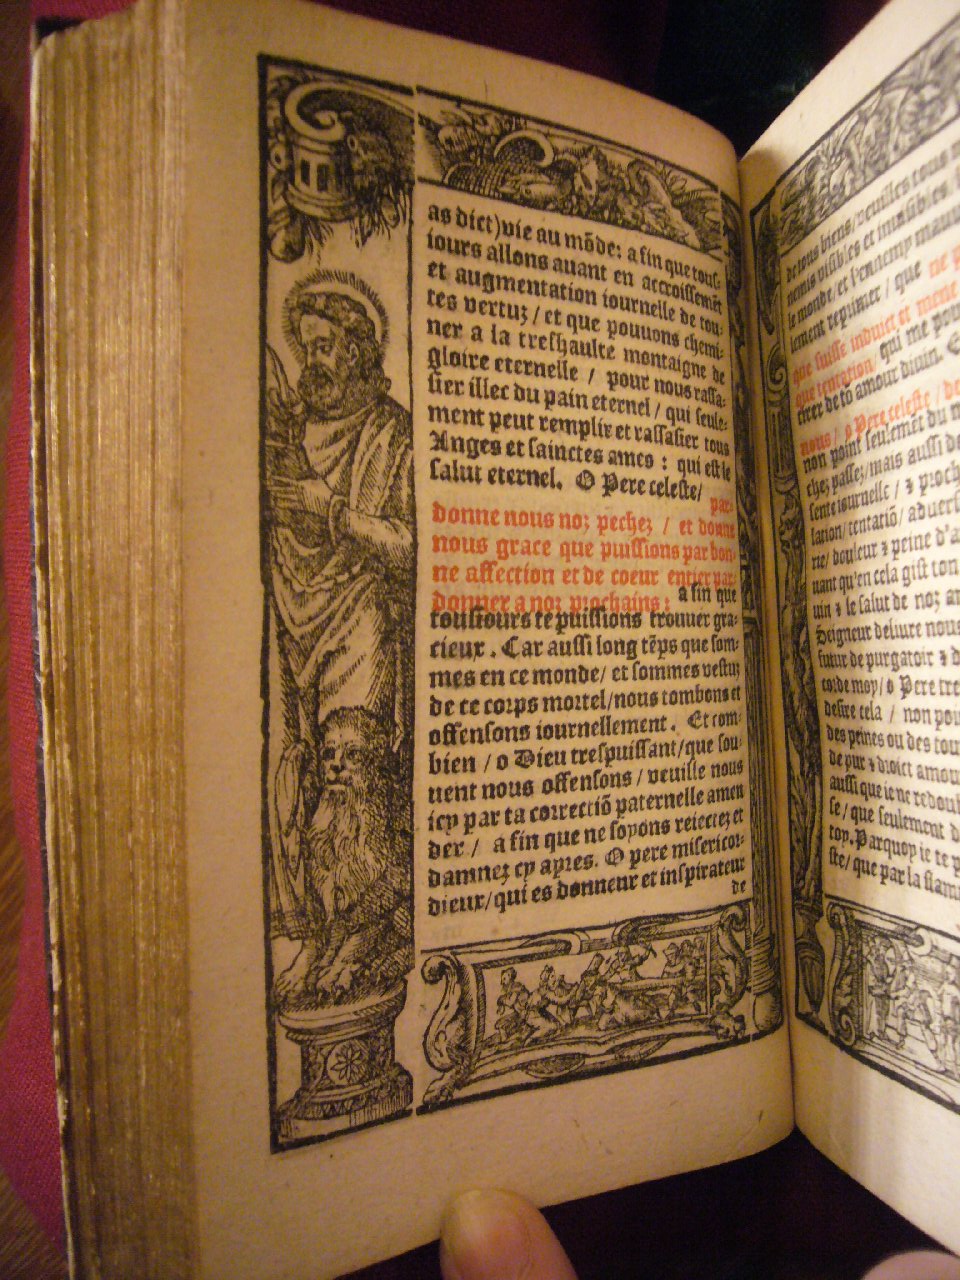 as dict) vie au mõde: a fin que tous-
iours allons auant en accroissemẽt
et augmentation iournelle de tou-
tes vertuz / et que pouuons chemi-
ner a la treshaulte montaigne de
gloire eternelle / pour nous rassa-
sier illec du pain eternel / qui seule-
ment peut remplir et rassasier tous
Anges et sainctes ames : qui est le
salut eternel. O Pere celeste/ par-
donne nous noz pechez / et donne
nous grace que puissions par bon-
ne affection et de coeur entier par-
donner a noz prochains : a fin que
tousiours te puissions trouuer gra-
cieux. Car aussi long tẽps que som-
mes en ce monde / et sommes vestuz
de ce corps mortel / nous tombons et
offensons iournellement. Et com-
bien / o Dieu trespuissant / que sou-
uent nous offensons / veuille nous
icy par ta correctiõ paternelle amen
der / a fin que ne soyons reiectez et
damnez cy apres. O pere misericor-
dieux / qui es donneur et inspirateur
de
de tous biens / veuilles tous
nemis visibles et inuisibles
le monde / et l'ennemy mauu
lement reprimer / que ne p
que suisse induict et mene
que tentation / qui me pou
tirer de tõ amour diuin.
nous / o Pere celeste / de
non point seulemẽt du m
chez passez / mais aussi de
sente iournelle / & proch
lation / tentatiõ / aduers
rie / douleur & peine d'a
uant qu'en cela gist ton
uin & le salut de noz am
Seigneur deliure nous
futur de purgatoir & d
corde moy / o Pere tre
desire cela / non pou
des peines ou des tou
de pur & droict amou
aussi que ie ne redoub
se / que seulement d
toy. Parquoy ie te p
ste / que par la flam